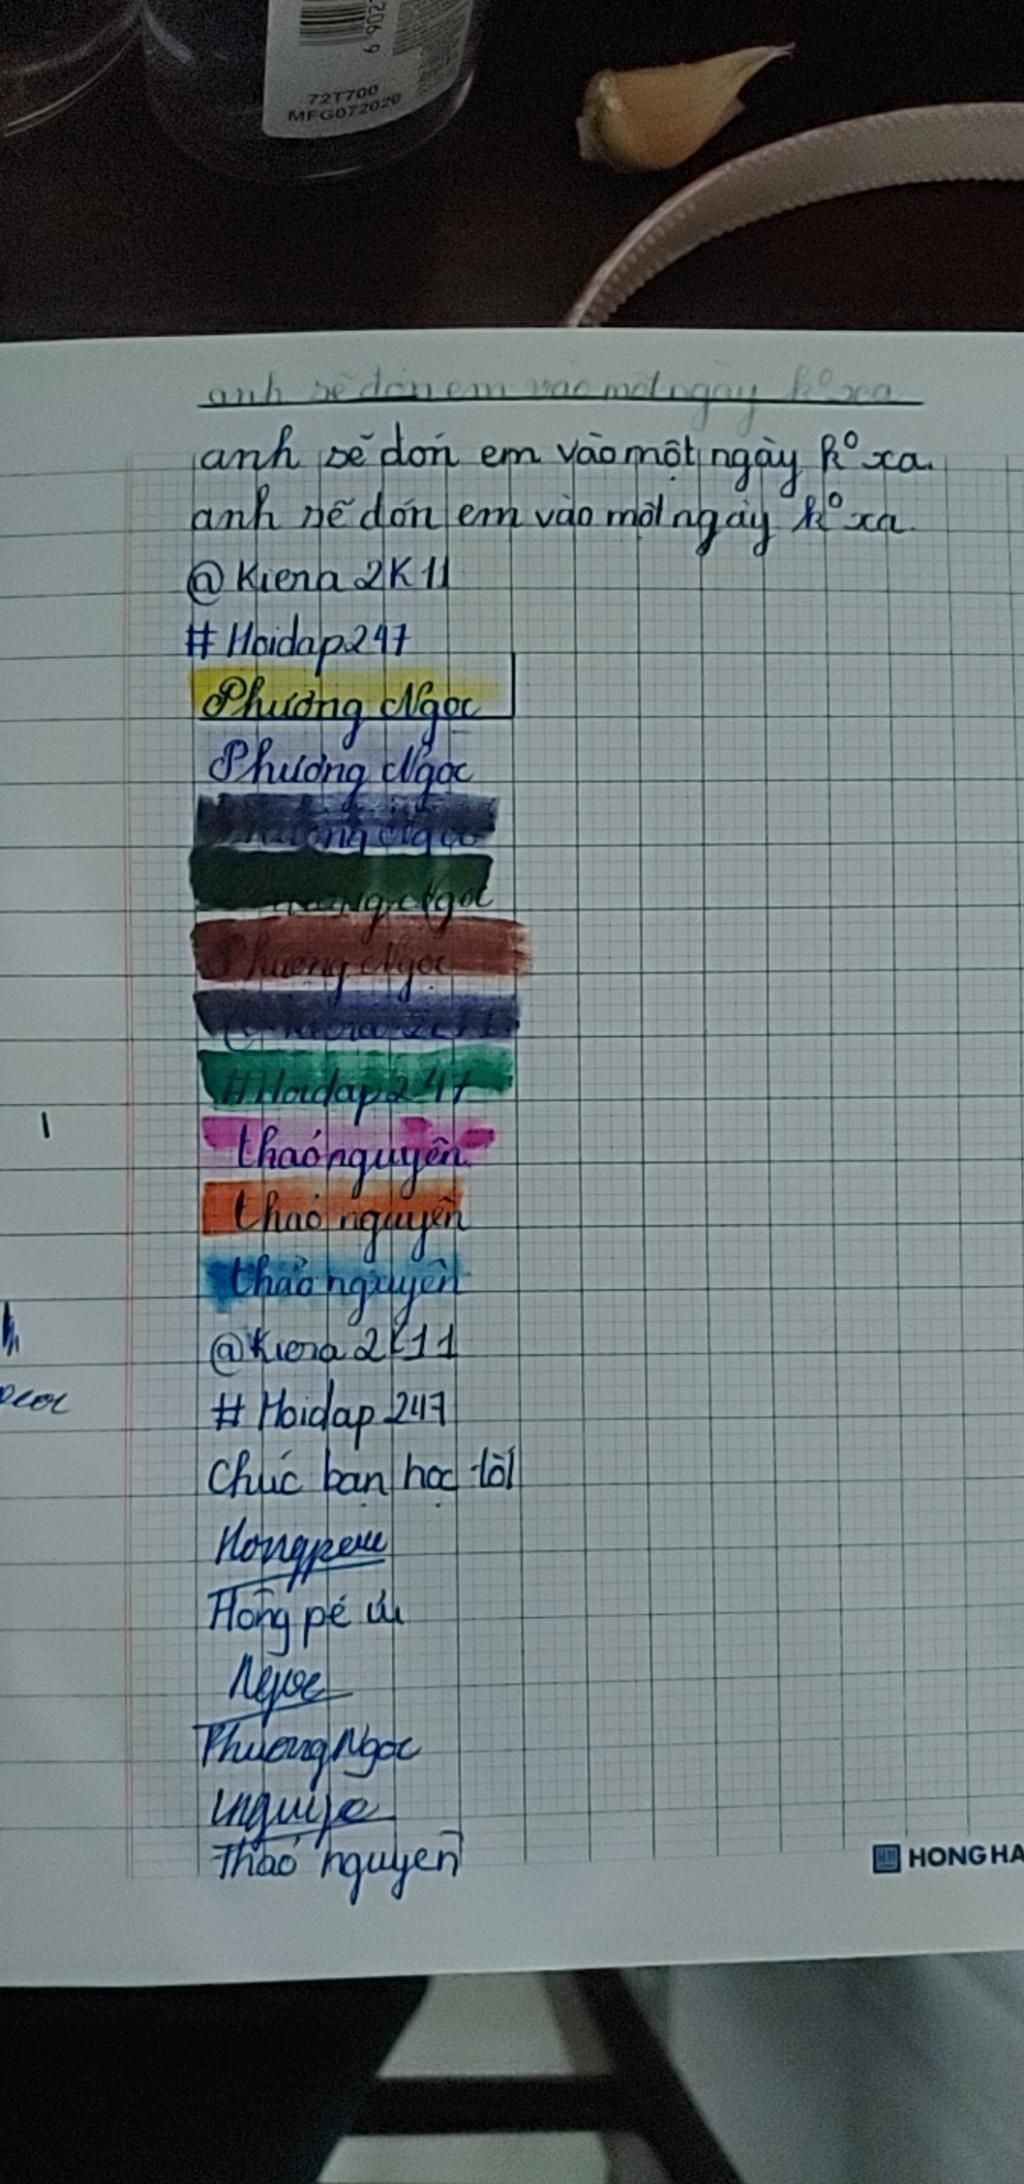 2069
72T700
MFG072020
anh sẽ đón em vào một ngày k° xa
anh sẽ dón em vào một ngày k° xa.
anh sẽ dón em vào một ngày k° xa.
@Kiera 2K11
# Hoidap247
Phương Ngọc
Phương Ngọc
Phương Ngọc
Phương Ngọc
Phương Ngọc
@Kiera 2K11
#Hoidap247
thảo nguyên
thảo nguyên
thảo nguyên
@Kiera 2K11
# Hoidap 247
Chúc bạn học tốt
Hongpeiu
Hồng pé iu
Ngọc
Phương Ngọc
Thảo nguyên
HONG HA